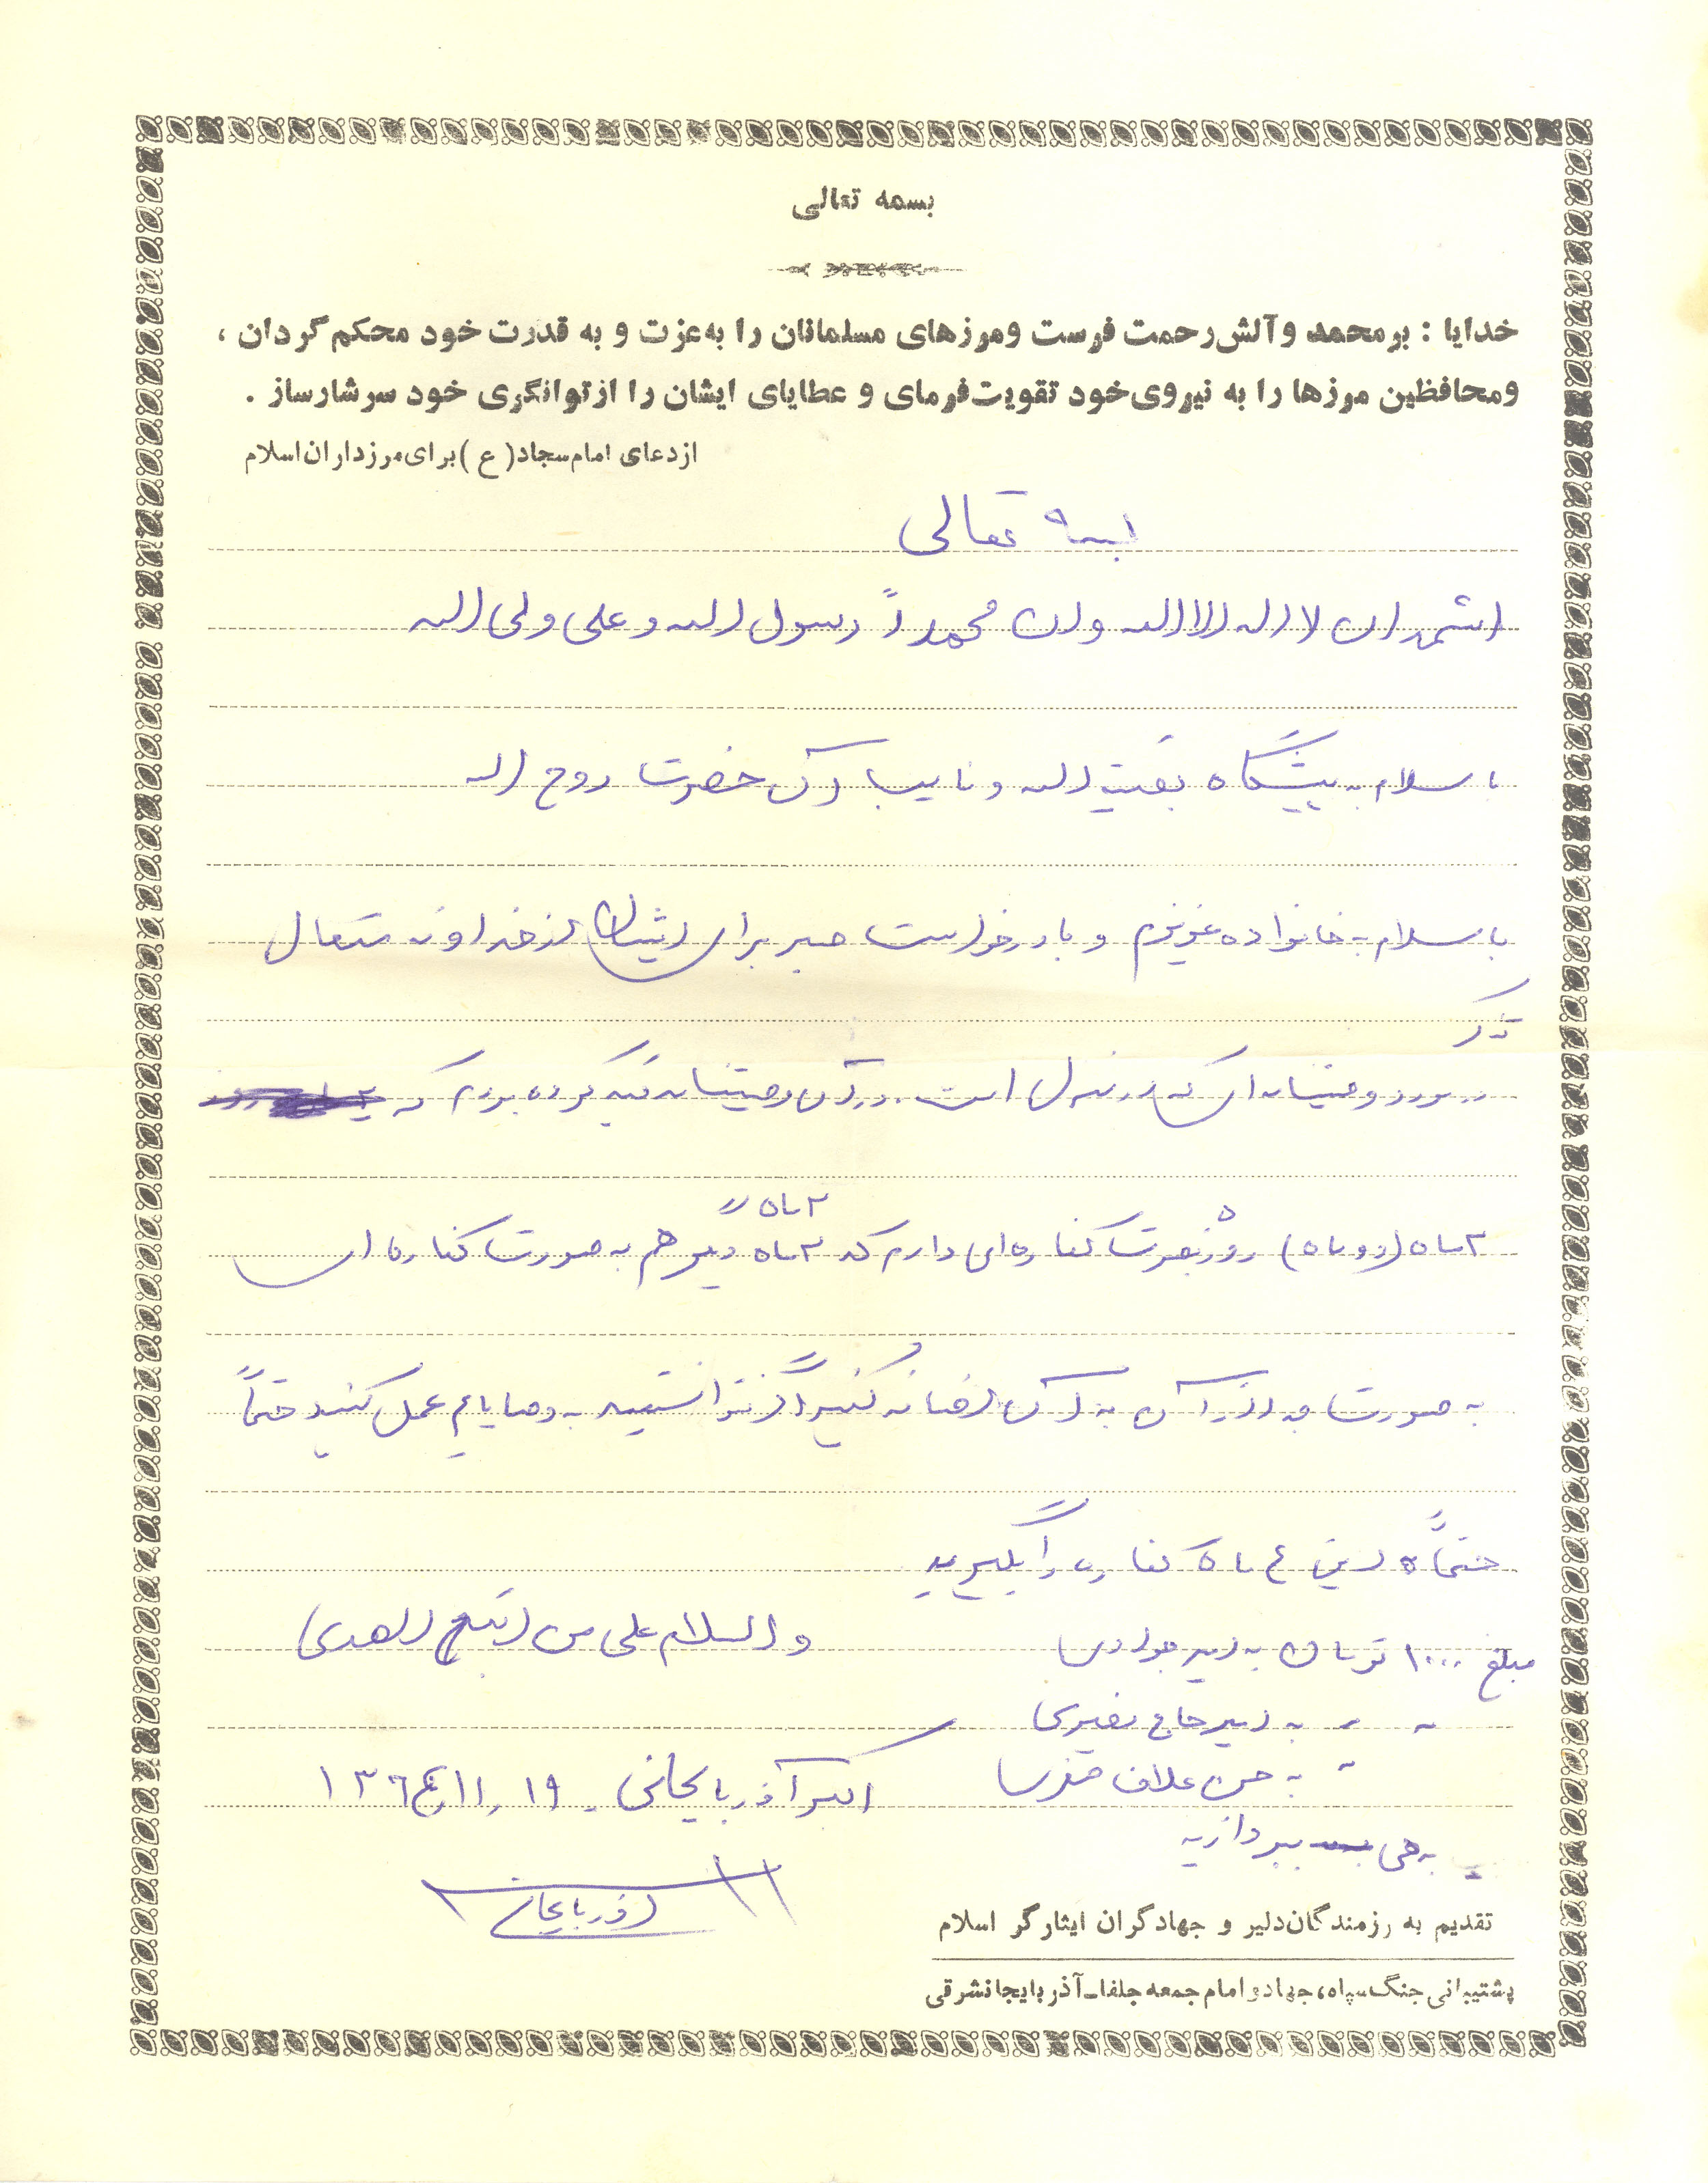 بسمه تعالی
خدایا : بر محمد و آلش رحمت فرست و مرزهای مسلمانان را به عزت و به قدرت خود محکم گردان ،
و محافظین مرزها را به نیروی خود تقویت فرمای و عطایای ایشان را از توانگری خود سرشار ساز .
از دعای امام سجاد (ع) برای مرزداران اسلام
بسمه تعالی
اشهد ان لا اله الا الله و ان محمداً رسول الله و علی ولی الله
با سلام به پیشگاه بقیة الله و نایب آن حضرت روح الله
با سلام به خانواده عزیزم و با درخواست صبر برای ایشان از خداوند متعال
تذکر
در مورد وصیتنامه ای که در منزل است. در آن وصیتنامه قید کرده بودم که
۲ ماه (دو ماه) روزه بصورت کفاره ای دارم که ۲ ماه دیگر هم به صورت کفاره ای
۲ ماه
به صورت جدا از آن به آن اضافه کنید و اگر نتوانستید به وصایایم عمل کنید حتماً
حتماً این ۴ ماه کفاره را بگیرید
والسلام علی من اتبع الهدی
مبلغ ۱۰۰۰ تومان به امیر جوادی
به امیر حاج نصیری
به حسن علاف
بپردازید
اکبر آذربایجانی ۱۹ ، ۱۱ ، ۱۳۶۴
آذربایجانی
تقدیم به رزمندگان دلیر و جهادگران ایثارگر اسلام
پشتیبانی جنگ سپاه، جهاد و امام جمعه جلفا - آذربایجانشرقی